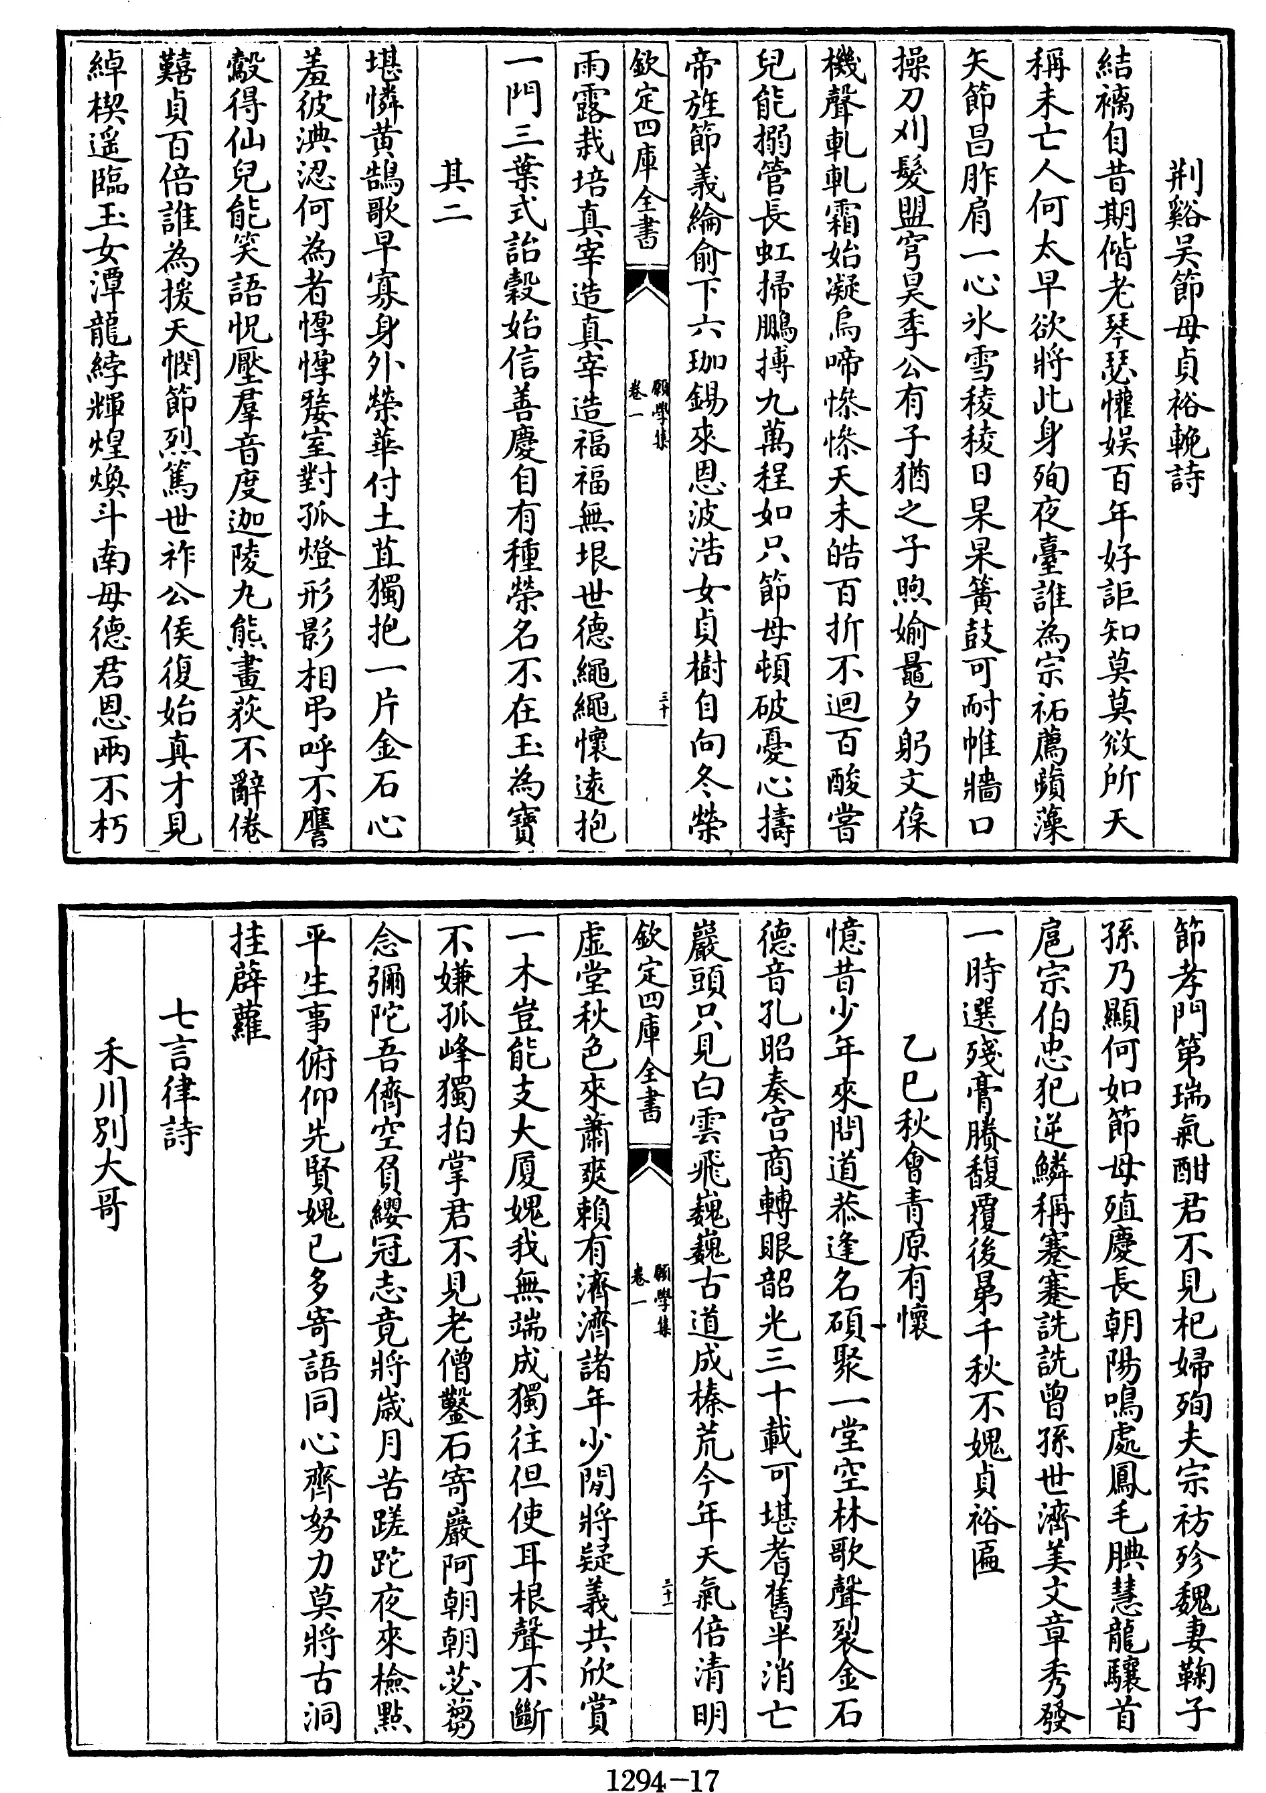 荆谿吴節母貞裕輓詩
結褵自昔期偕老琴瑟懽娱百年好詎知莫莫斂所天
稱未亡人何太早欲將此身殉夜臺誰為宗祏薦蘋藻
矢節昌胙肩一心氷雪稜稜日杲杲簧鼓可耐帷牆口
操刀刈髮盟穹昊季公有子猶之子煦媮鼂夕躬文葆
機聲軋軋霜始凝烏啼慘慘天未皓百折不迴百酸嘗
兒能搦管長虹掃鵬摶九萬程如只節母頓破憂心擣
帝旌節義綸俞下六珈錫來恩波浩女貞樹自向冬榮
欽定四庫全書
願學集
卷一
三十
雨露栽培真宰造真宰造福福無垠世德繩繩懷遠抱
一門三葉式詒穀始信善慶自有種榮名不在玉為寶
其二
堪憐黄鵠歌早寡身外榮華付土苴獨抱一片金石心
羞彼淟涊何為者惸惸嫠室對孤燈形影相弔呼不譍
鷇得仙兒能笑語怳壓羣音度迦陵九熊畫荻不辭倦
囏貞百倍誰為援天憫節烈篤世祚公侯復始真才見
綽楔遥臨玉女潭龍綍輝煌煥斗南母德君恩兩不朽
節孝門第瑞氣酣君不見杞婦殉夫宗祊珍魏妻鞠子
孫乃顯何如節母殖慶長朝陽鳴處鳳毛腆慧龍驤首
扈宗伯忠犯逆鱗稱蹇蹇詵詵曾孫世濟美文章秀發
一時選殘膏賸馥覆後昆千秋不媿貞裕匾
乙巳秋會青原有懷
憶昔少年來問道恭逢名碩聚一堂空林歌聲裂金石
德音孔昭奏宫商轉眼韶光三十載可堪耆舊半消亡
巖頭只見白雲飛巍巍古道成榛荒今年天氣倍清明
欽定四庫全書
願學集
卷一
三十一
虚堂秋色來蕭爽賴有濟濟諸年少閒將疑義共欣賞
一木豈能支大厦媿我無端成獨往但使耳根聲不斷
不嫌孤峰獨拍掌君不見老僧鑿石寄巖阿朝朝苾蒭
念彌陀吾儕空負纓冠志竟將歲月苦蹉跎夜來檢點
平生事俯仰先賢媿已多寄語同心齊努力莫將古洞
挂薜蘿
七言律詩
禾川别大哥
1294-17